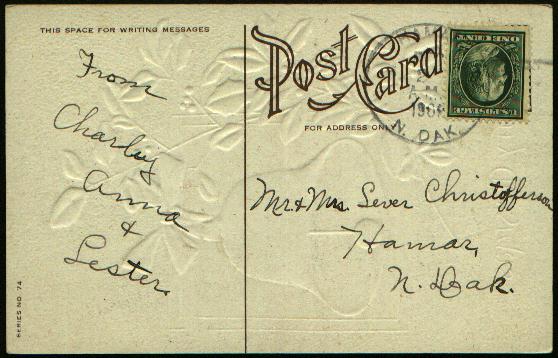 THIS SPACE FOR WRITING MESSAGES
From
Charley
Anna
&
Lester.
SERIES NO. 74
Post Card
FOR ADDRESS ONLY
Mr. & Mrs. Sever Christofferson
Hamar,
N. Dak.
A M
190
N. DAK
U.S. POSTAGE
ONE CENT